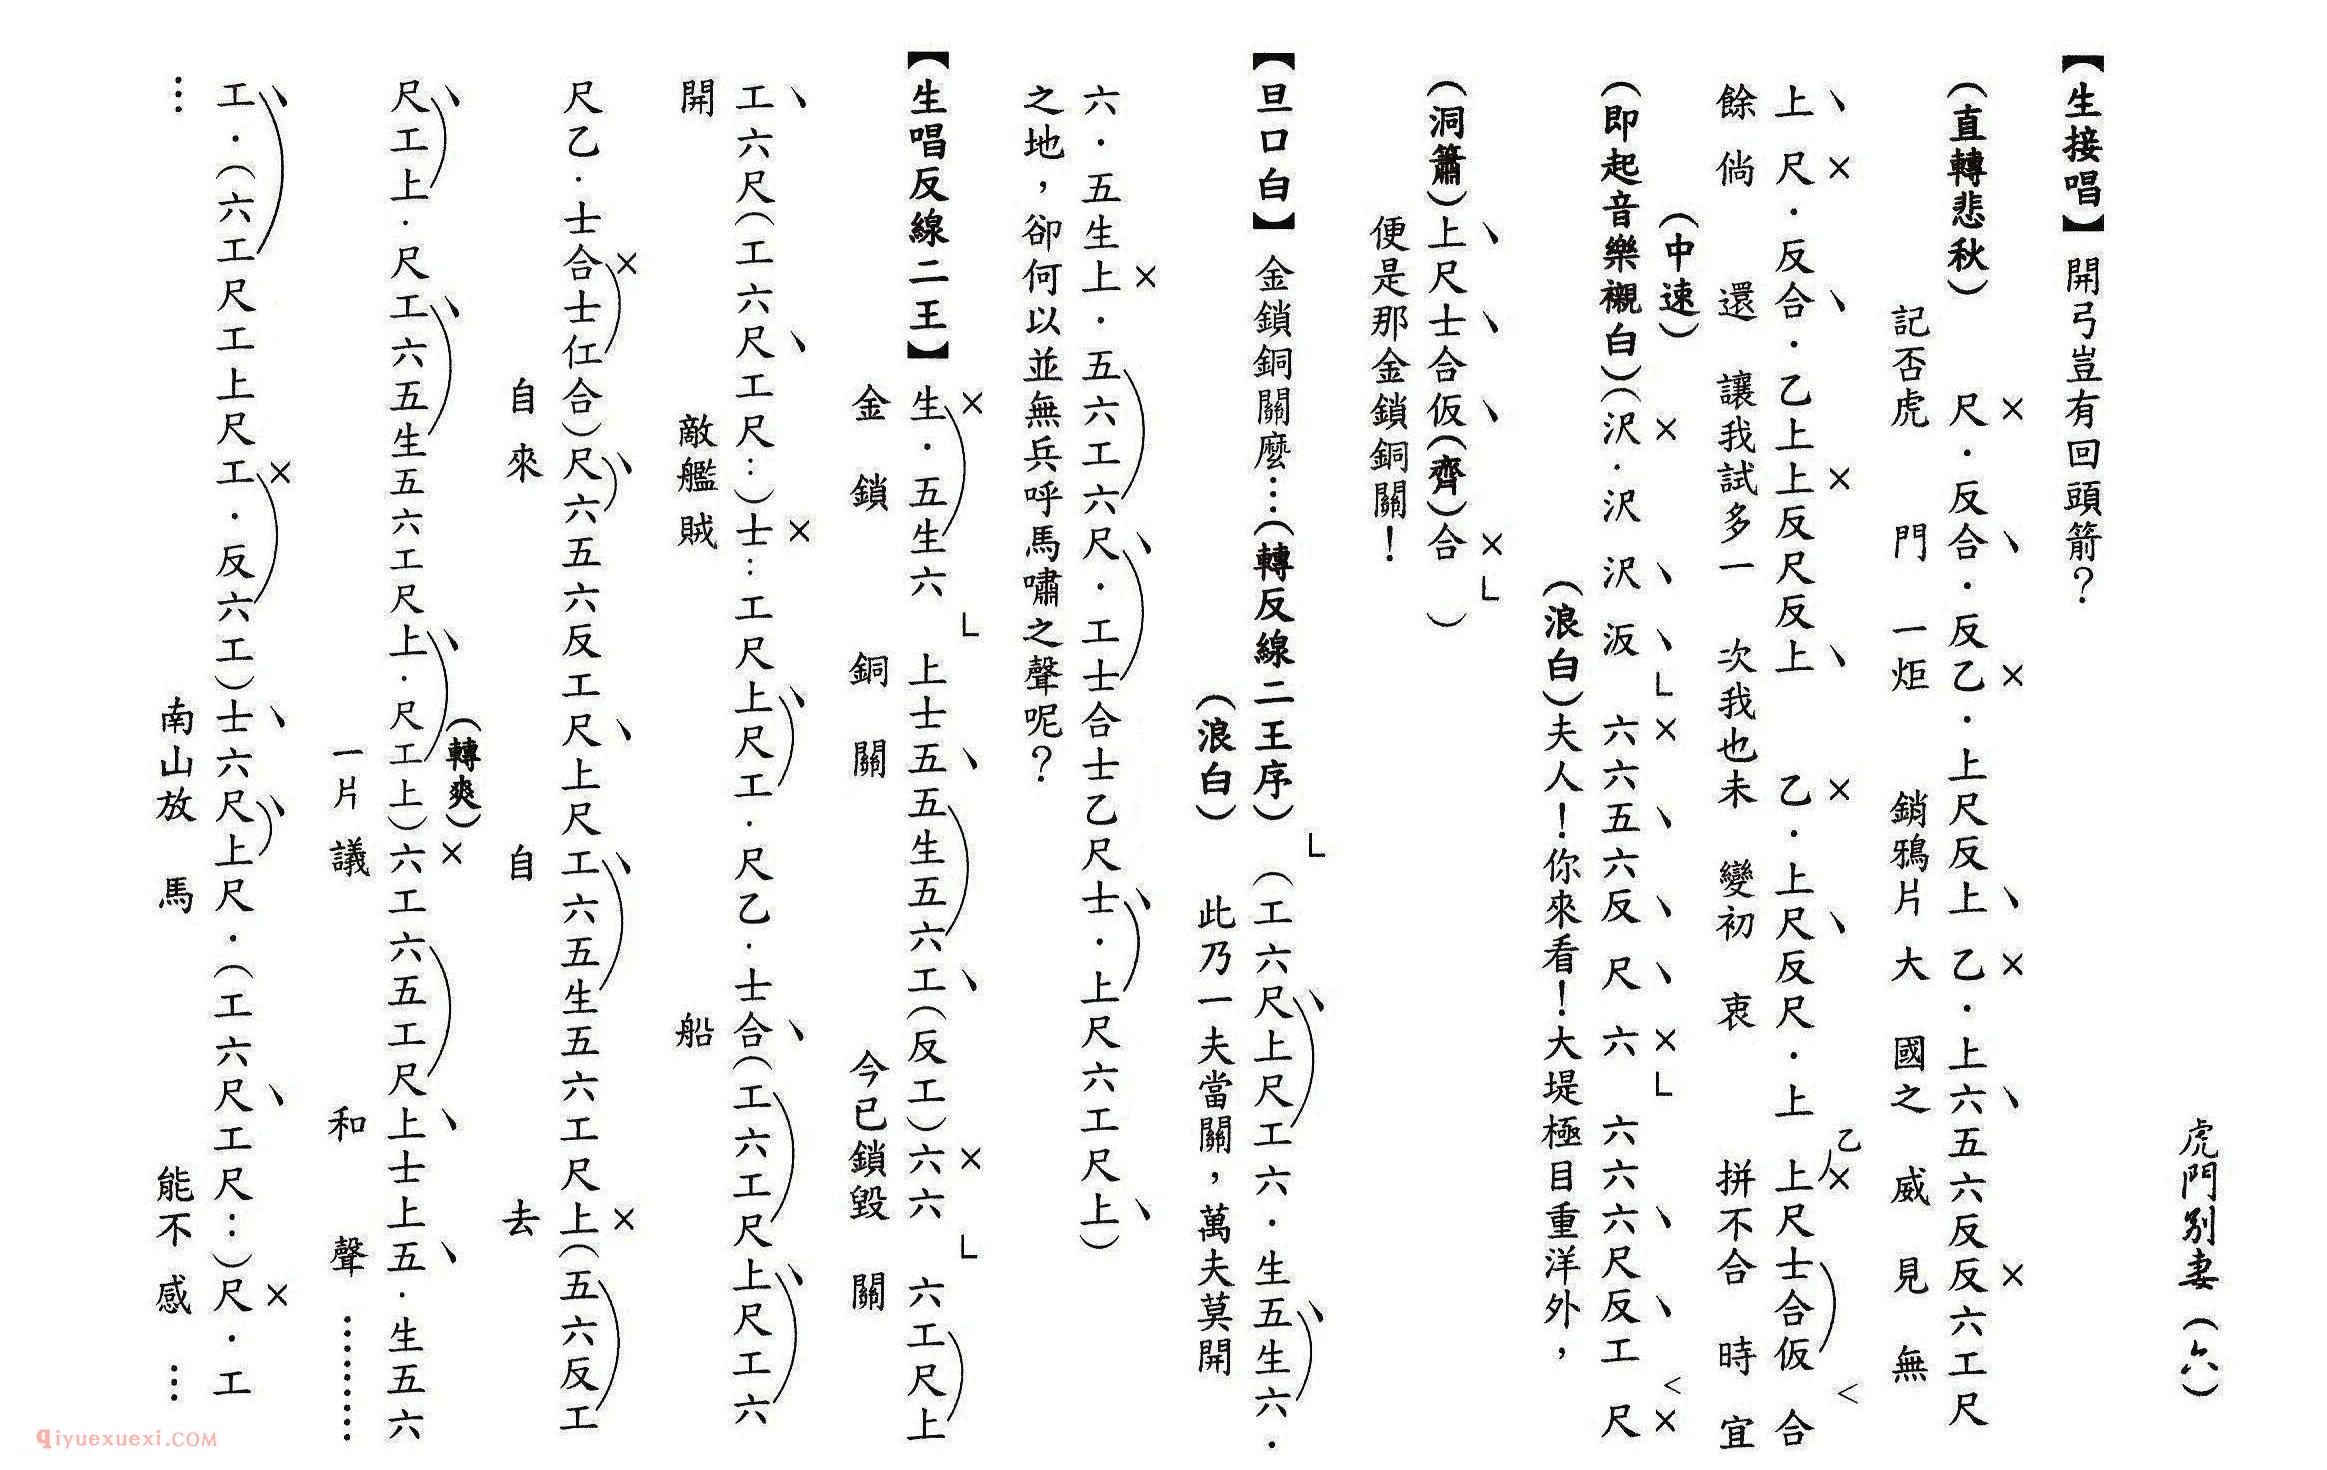 虎門別妻（六）
【生接唱】開弓豈有回頭箭？
（直轉悲秋）尺．反合．反乙．上尺反上乙．上六五六反反六工尺
記否虎門一炬銷鴉片大國之威見無
上尺．反合．乙上上反尺反上乙．上尺反尺．上乙上尺士合仮合
餘倘還讓我試多一次我也未變初衷拼不合時宜
（中速）
（即起音樂襯白）（沢．沢沢泛六六五六反尺六六六六尺反工尺
（浪白）夫人！你來看！大堤極目重洋外，
（洞簫）上尺士合仮（齊）合）
便是那金鎖銅關！
【旦口白】金鎖銅關麼…（轉反線二王序）（工六尺上尺工六．生五生六．
（浪白）此乃一夫當關，萬夫莫開
六．五生上．五六工六尺．工士合士乙尺士．上尺六工尺上）
之地，卻何以並無兵呼馬嘯之聲呢？
【生唱反線二王】生．五生六上士五五生五六工（反工）六六六工尺上
金鎖銅關今已鎖毀關
工六尺（工六尺工尺：）士：工尺上尺工．尺乙．士合（工六工尺上尺工六
開敵艦賊船
尺乙．士合士仜合）尺六五六反工尺上尺工六五生五六工尺上（五六反工
自來自去
尺工上．尺工六五生五六工尺上．尺工上）（轉爽）六工六五工尺上士上五．生五六
一片議和聲………
工．（六工尺工上尺工．反六工）士六尺上尺．（工六尺工尺：）尺．工
…南山放馬能不感…
qiyuexuexi.COM